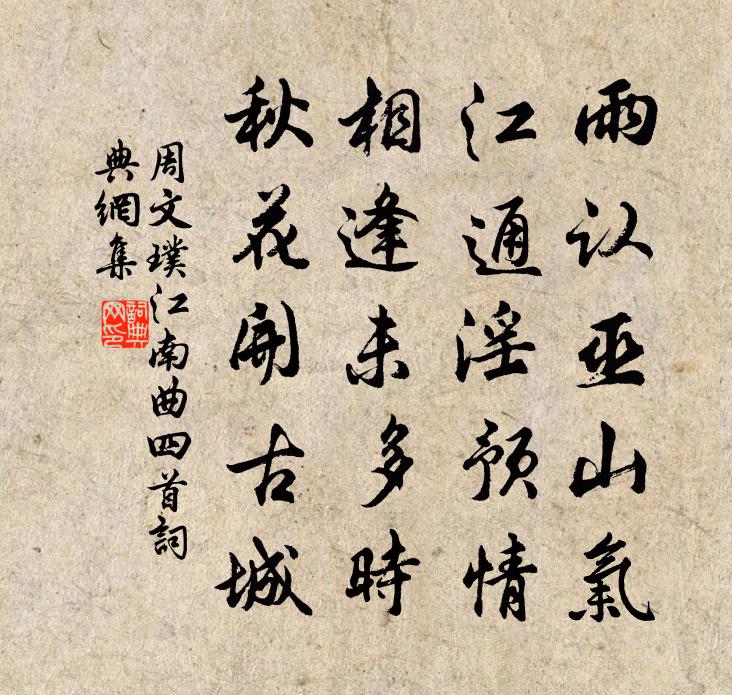 雨认巫山氣
江通淫預情
相逢未多時
秋花開古城
周文璞江南曲四首詞
典網集
詞典
网印